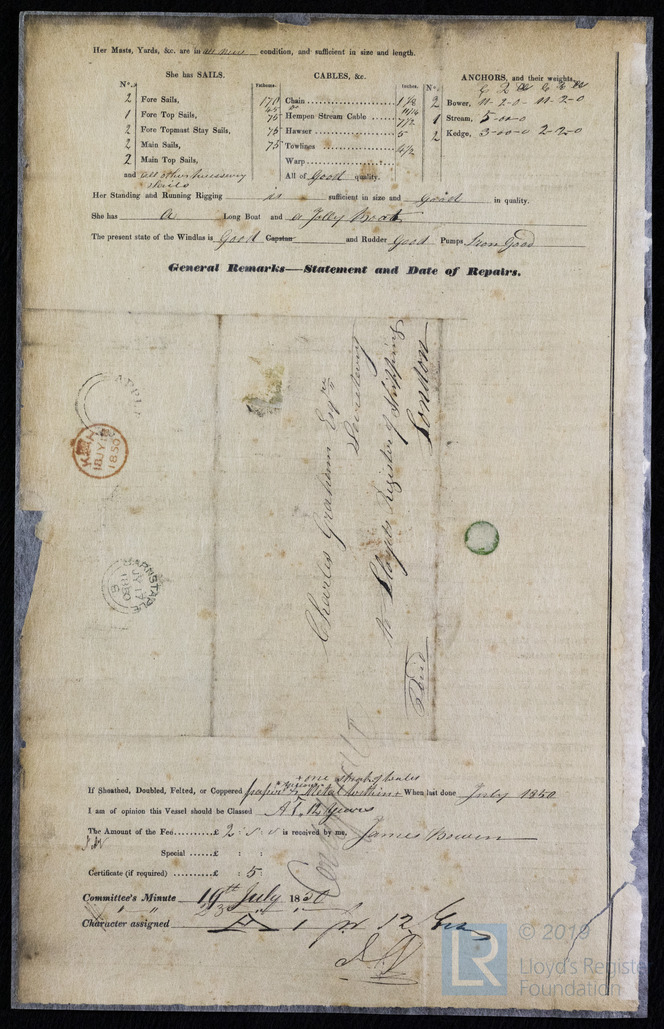 Her Masts, Yards, &c. are in all new condition, and sufficient in size and length.
She has SAILS.
CABLES, &c.
ANCHORS, and their weights.
N°.
Fathoms.
Inches.
N°.
2 Fore Sails,
1 Fore Top Sails,
2 Fore Topmast Stay Sails,
2 Main Sails,
2 Main Top Sails,
and all other necessary sails
170 Chain 1 1/8
75 Hempen Stream Cable 7 1/2
75 Hawser 5
75 Towlines 4 1/2
Warp
All of Good quality.
2 Bower, 11-2-0- 11-2-0
1 Stream, 5-0-0
2 Kedge, 3-0-0 2-2-0
Her Standing and Running Rigging is sufficient in size and good in quality.
She has a Long Boat and a Jolly Boat
The present state of the Windlas is Good Capstan and Rudder Good Pumps Iron Good
General Remarks—Statement and Date of Repairs.
Charles Graham Esqre
Secretary
to Lloyds Register of Shipping
London
Paid
APPLE
18 JY 18
1850
BARNSTAPLE
JY 17
1850
B
If Sheathed, Doubled, Felted, or Coppered paper & Metal within + When last done July 1850
+ one strak of wales
I am of opinion this Vessel should be Classed A 1. 12 years
The Amount of the Fee.......... £ 2 : 5 : 0 is received by me, James Bowen
Special ...... £ : :
Certificate (if required) .......... £ : 5 :
Committee's Minute 19th July 1850
23
Character assigned A 1 for 12 Yrs
LR
© 2019
Lloyd's Registe
Foundation